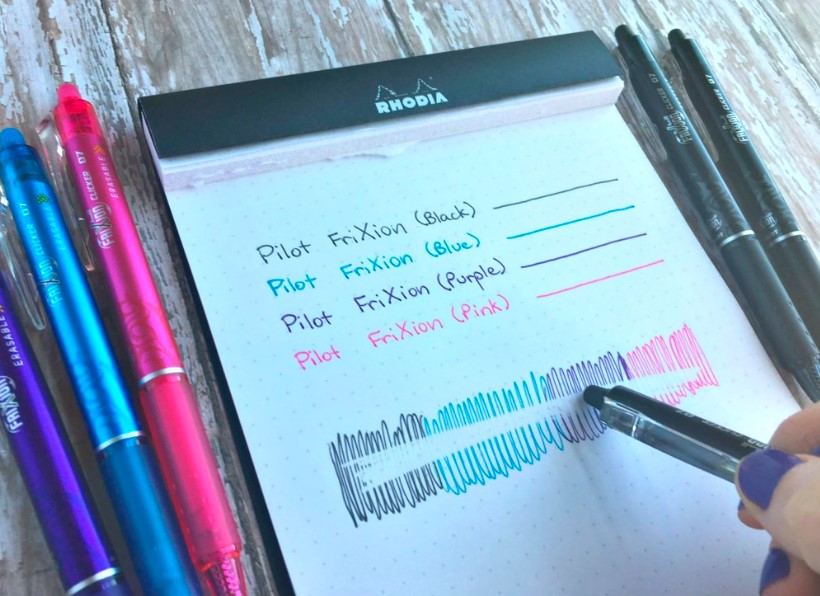 RHODIA
Pilot FriXion (Black)
Pilot FriXion (Blue)
Pilot FriXion (Purple)
Pilot FriXion (Pink)
FriXion CLICKER 07
ERASABLE
FriXion CLICKER 07
FriXion
ERASABLE
FriXion CLICKER 07
FriXion CLICKER 07